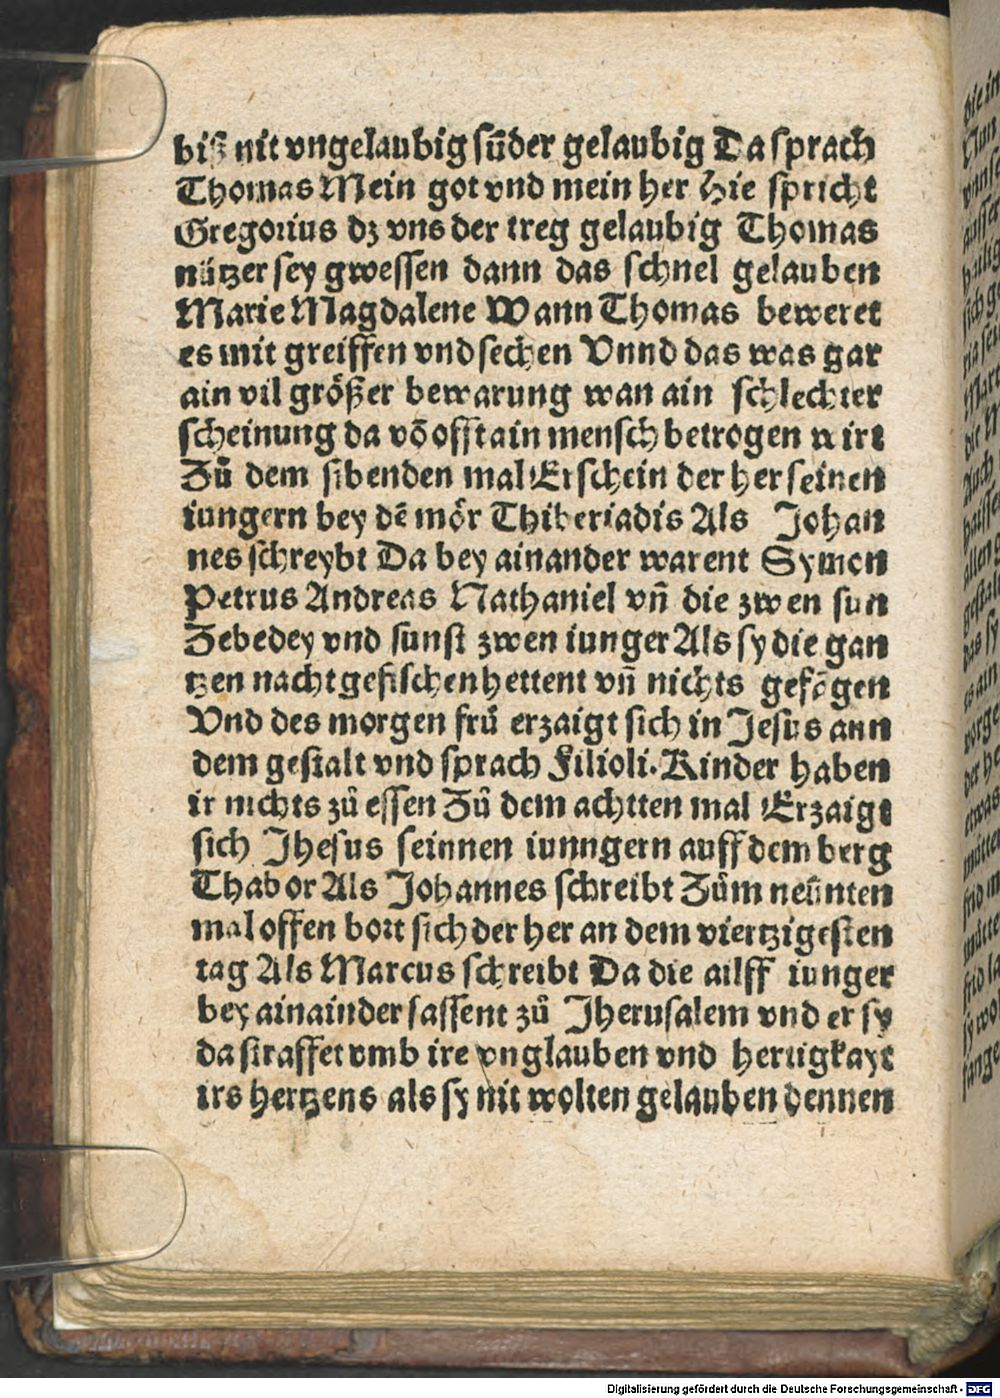 biß nit vngelaubig sūder gelaubig Da sprach
Thomas Mein got vnd mein her Hie spricht
Gregorius dz vns der treg gelaubig Thomas
nützer sey gwessen dann das schnel gelauben
Marie Magdalene Wann Thomas beweret
es mit greiffen vnd sechen Vnnd das was gar
ain vil größer bewarung wan ain schlechter
scheinung da vō offt ain mensch betrogen wirt
Zů dem sibenden mal Erschein der her seinen
iungern bey dē mör Thiberiadis Als Johan
nes schreybt Da bey ainander warent Symon
Petrus Andreas Nathaniel vñ die zwen sun
Zebedey vnd sunst zwen iunger Als sy die gan
tzen nacht gefischen hettent vñ nichts gefāgen
Vnd des morgen frů erzaigt sich in Jesus ann
dem gestalt vnd sprach Filioli. Kinder haben
ir nichts zů essen Zů dem achtten mal Erzaigt
sich Jhesus seinnen iunngern auff dem berg
Thabor Als Johannes schreibt Zům neůnten
mal offen bort sich der her an dem viertzigesten
tag Als Marcus schreibt Da die ailff iunger
bey ainainder sassent zů Jherusalem vnd er sy
da straffet vmb ire vnglauben vnd hertigkayt
irs hertzens als sy nit wolten gelauben dennen
Digitalisierung gefördert durch die Deutsche Forschungsgemeinschaft - DFG